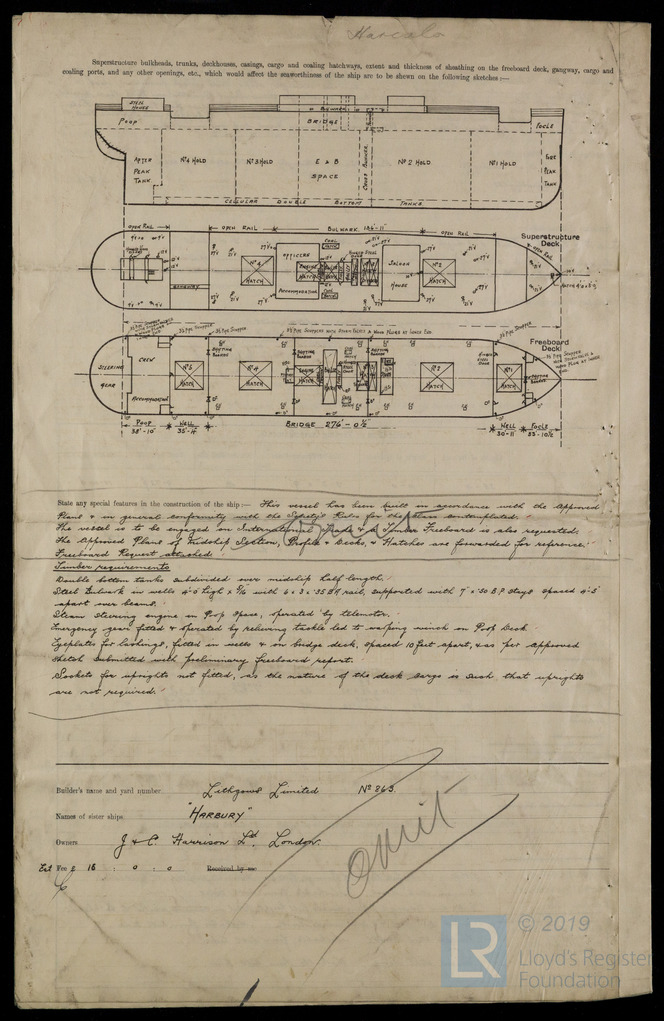 Superstructure bulkheads, trunks, deckhouses, casings, cargo and coaling hatchways, extent and thickness of sheathing on the freeboard deck, gangway, cargo and
coaling ports, and any other openings, etc., which would affect the seaworthiness of the ship are to be shewn on the following sketches :—
STEEL HOUSE
POOP
BRIDGE
FOCLE
AFTER PEAK TANK
No 4 HOLD
No 3 HOLD
E & B SPACE
CROSS BUNKER
No 2 HOLD
No 1 HOLD
FORE PEAK TANK
CELLULAR DOUBLE BOTTOM TANKS
OPEN RAIL
OPEN RAIL
BULWARK 136'-11"
OPEN RAIL
Superstructure Deck
OFFICERS
ACCOMMODATION
SALOON HOUSE
HATCH
HATCH
Freeboard Deck
STEERING GEAR
CREW
ACCOMMODATION
No 5 HATCH
No 4 HATCH
No 2 HATCH
No 1 HATCH
POOP 38'-10"
WELL
BRIDGE 276'-0½"
WELL 30'-11"
FOCLE 33'-10½
State any special features in the construction of the ship :— This vessel has been built in accordance with the Approved
Plans & in general conformity with the Society's Rules for the class contemplated.
The vessel is to be engaged on International Trade & a Timber Freeboard is also requested.
The Approved Plans of Midship Section, Profile & Decks, & Hatches are forwarded for reference.
Freeboard Request attached.
Timber requirements
Double bottom tanks subdivided over midship half length.
Steel Bulwark in wells 4'-0" high x 5/16 with 6 x 3 x .35 BA rail, supported with 7" x .30 B.P stays spaced
apart over beams.
Steam steering engine in Poop space, operated by telemotor.
Emergency gear fitted & operated by relieving tackle led to warping winch on Poop Deck.
Eyeplates for lashings, fitted in wells & on bridge deck, spaced 10 feet apart, & as per approved
sketch submitted with preliminary freeboard report.
Sockets for uprights not fitted, as the nature of the deck cargo is such that uprights
are not required.
Builder's name and yard number Lithgows Limited No 863.
Names of sister ships "HARBURY"
Owners J & C. Harrison Ld, London.
Est Fee £ 15 : 0 : 0 Received by me
omit
LR
© 2019
Lloyd's Register
Foundation